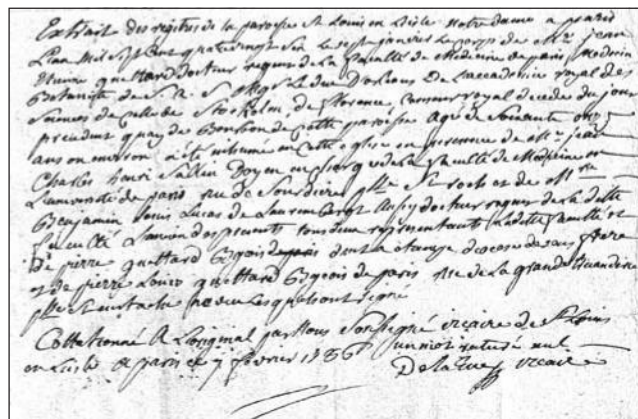 Extrait des registres de la paroisse St Louis en L'isle Notre dame a paris
L'an Mil sept Cent quatrevingt six le sept janvier le corps de Mr jean
Etienne guettard docteur regent de la faculté de Medecine de paris, Medecin
Botaniste de S. A. S. Mgr Le duc D'orleans De L'accademie royal des
Sciences de celle de Stockolm, de florence, Censeur royal decedé du jour
precedent quay de Bourbon de Cette paroisse agé de soixante onze
ans ou environ a été inhumé en Cette eglise en presence de Mr jean
Charles henri Sallin Doyen en charge de La faculté de Medecine en
L'université de paris rue de Sourdiere psse St roch et de Mre
Benjamin Louis Lucas de Laurembert Aussy docteur regent de la ditte
faculté L'ancien des presents tous deux representants Laditte faculté et
De pierre guettard Bgeois de paris dem.t a etampe diocese de sens frere
et De pierre Louis guettard Bgeois de paris rue de la grande truanderie
psse St eustache neveu Lesquels ont signé
Collationné a L'original par Nous soussigné vicaire de St Louis
en L'isle a paris ce 7 fevrier 1786 un mot raturé nul
Delarue vicaire